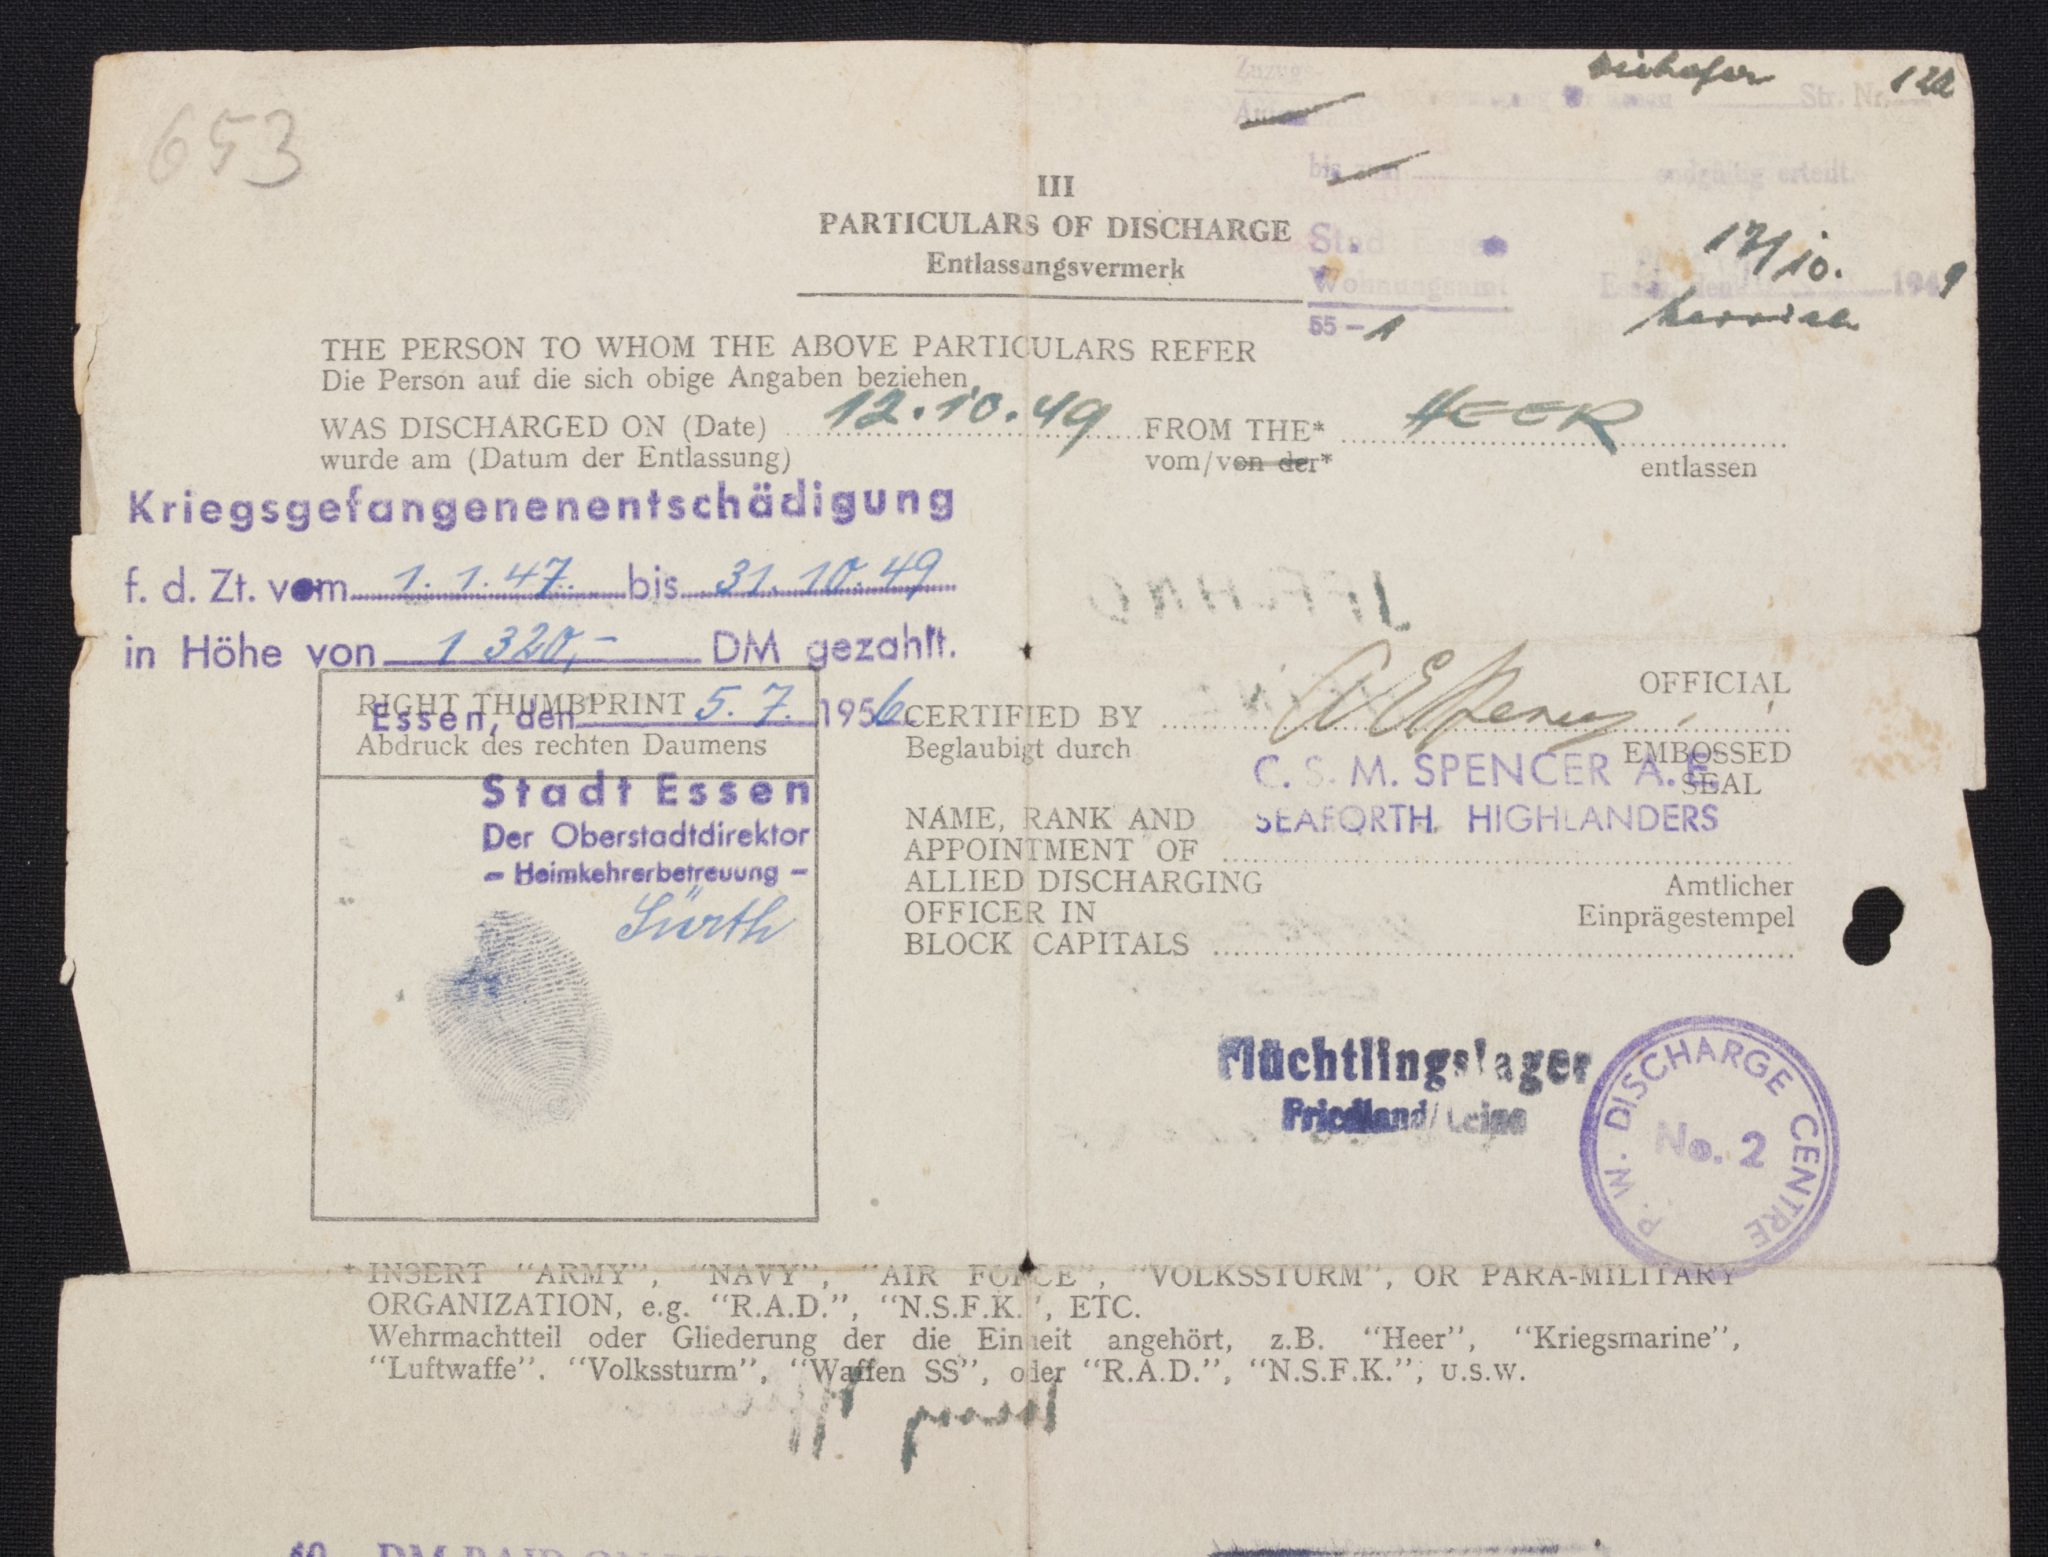 653
Zuzugs-
Str. Nr. 12a
bis zum endgültig erteilt.
III
PARTICULARS OF DISCHARGE
Entlassungsvermerk
Stadt Essen
Wohnungsamt
17/10. 1949
Essen, den
55 - 1
THE PERSON TO WHOM THE ABOVE PARTICULARS REFER
Die Person auf die sich obige Angaben beziehen
WAS DISCHARGED ON (Date) 12.10.49 FROM THE* HEER
wurde am (Datum der Entlassung) vom/von der* entlassen
Kriegsgefangenenentschädigung
f. d. Zt. vom 1. 1. 47. bis 31. 10. 49
in Höhe von 1 320,- DM gezahlt.
RIGHT THUMBPRINT
Essen, den 5. 7. 1956
Abdruck des rechten Daumens
Stadt Essen
Der Oberstadtdirektor
- Heimkehrerbetreuung -
Sürth
OFFICIAL
CERTIFIED BY
Beglaubigt durch
EMBOSSED
SEAL
C. S. M. SPENCER A. E.
SEAFORTH. HIGHLANDERS
NAME, RANK AND
APPOINTMENT OF
ALLIED DISCHARGING
OFFICER IN
BLOCK CAPITALS
Amtlicher
Einprägestempel
Flüchtlingslager
Friedland/Leine
P. W. DISCHARGE CENTRE
No. 2
* INSERT "ARMY", "NAVY", "AIR FORCE", "VOLKSSTURM", OR PARA-MILITARY
ORGANIZATION, e.g. "R.A.D.", "N.S.F.K.", ETC.
Wehrmachtteil oder Gliederung der die Einheit angehört, z.B. "Heer", "Kriegsmarine",
"Luftwaffe". "Volkssturm", "Waffen SS", oder "R.A.D.", "N.S.F.K.", U.S.W.